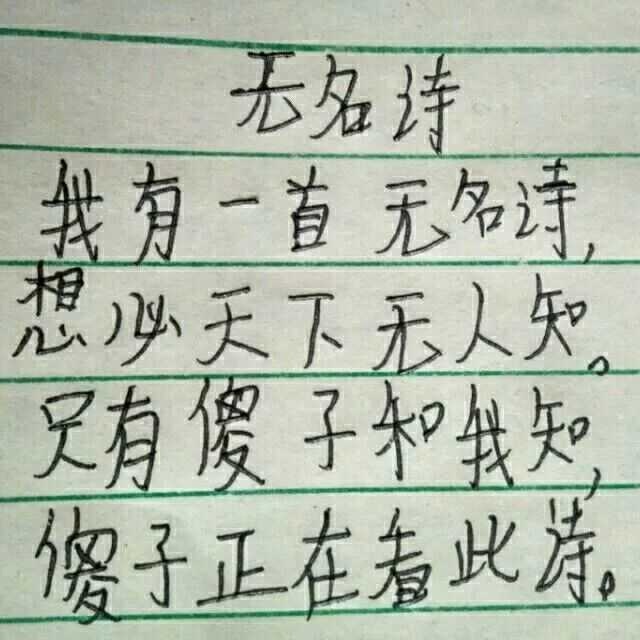 无名诗
我有一首无名诗,
想必天下无人知。
只有傻子和我知,
傻子正在看此诗。